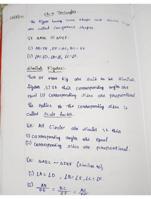 Ch-7 Triangles
The figure having same shape and same size
are called congruent shapes.
(i) AB = DE, BC = EF, AC = DF
Similar Figures:
Two or more fig are said to be similar
figure, if (i) their corresponding angles are
equal (ii) corresponding sides are proportional
The ratio of the corresponding sides is
called Scale factor.
Ex: All Circles are similar
(i) corresponding angles are equal
(ii) corresponding sides are proportional.
Ex: ΔABC ~ ΔDEF (similar to)
(i) ∠A = ∠D, ∠B = ∠E, ∠C = ∠F
(ii) AB/DE = BC/EF = AC/DF